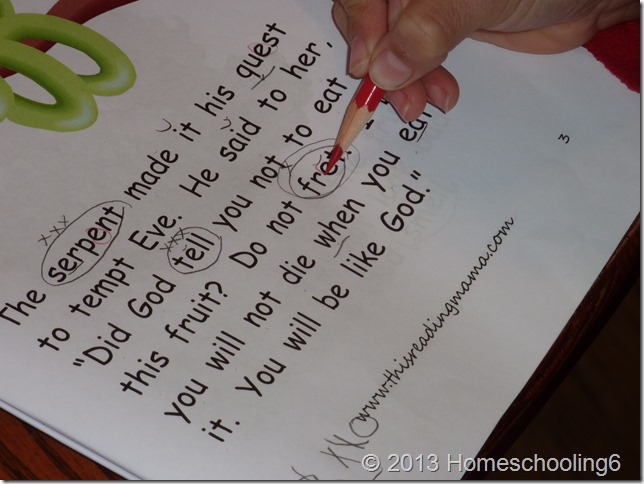 The serpent made it his quest
to tempt Eve. He said to her,
"Did God tell you not to eat
this fruit? Do not fret.
you will not die when you eat
it. You will be like God."
3
©www.thisreadingmama.com
XXX
XXX
© 2013 Homeschooling6